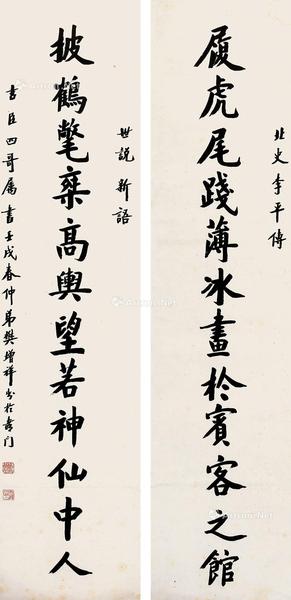 履虎尾踐薄冰畫於賓客之館
北史李平傳
披鶴氅乘高輿望若神仙中人
世說新語
吉臣四哥屬書壬戌春仲弟樊增祥書於都门